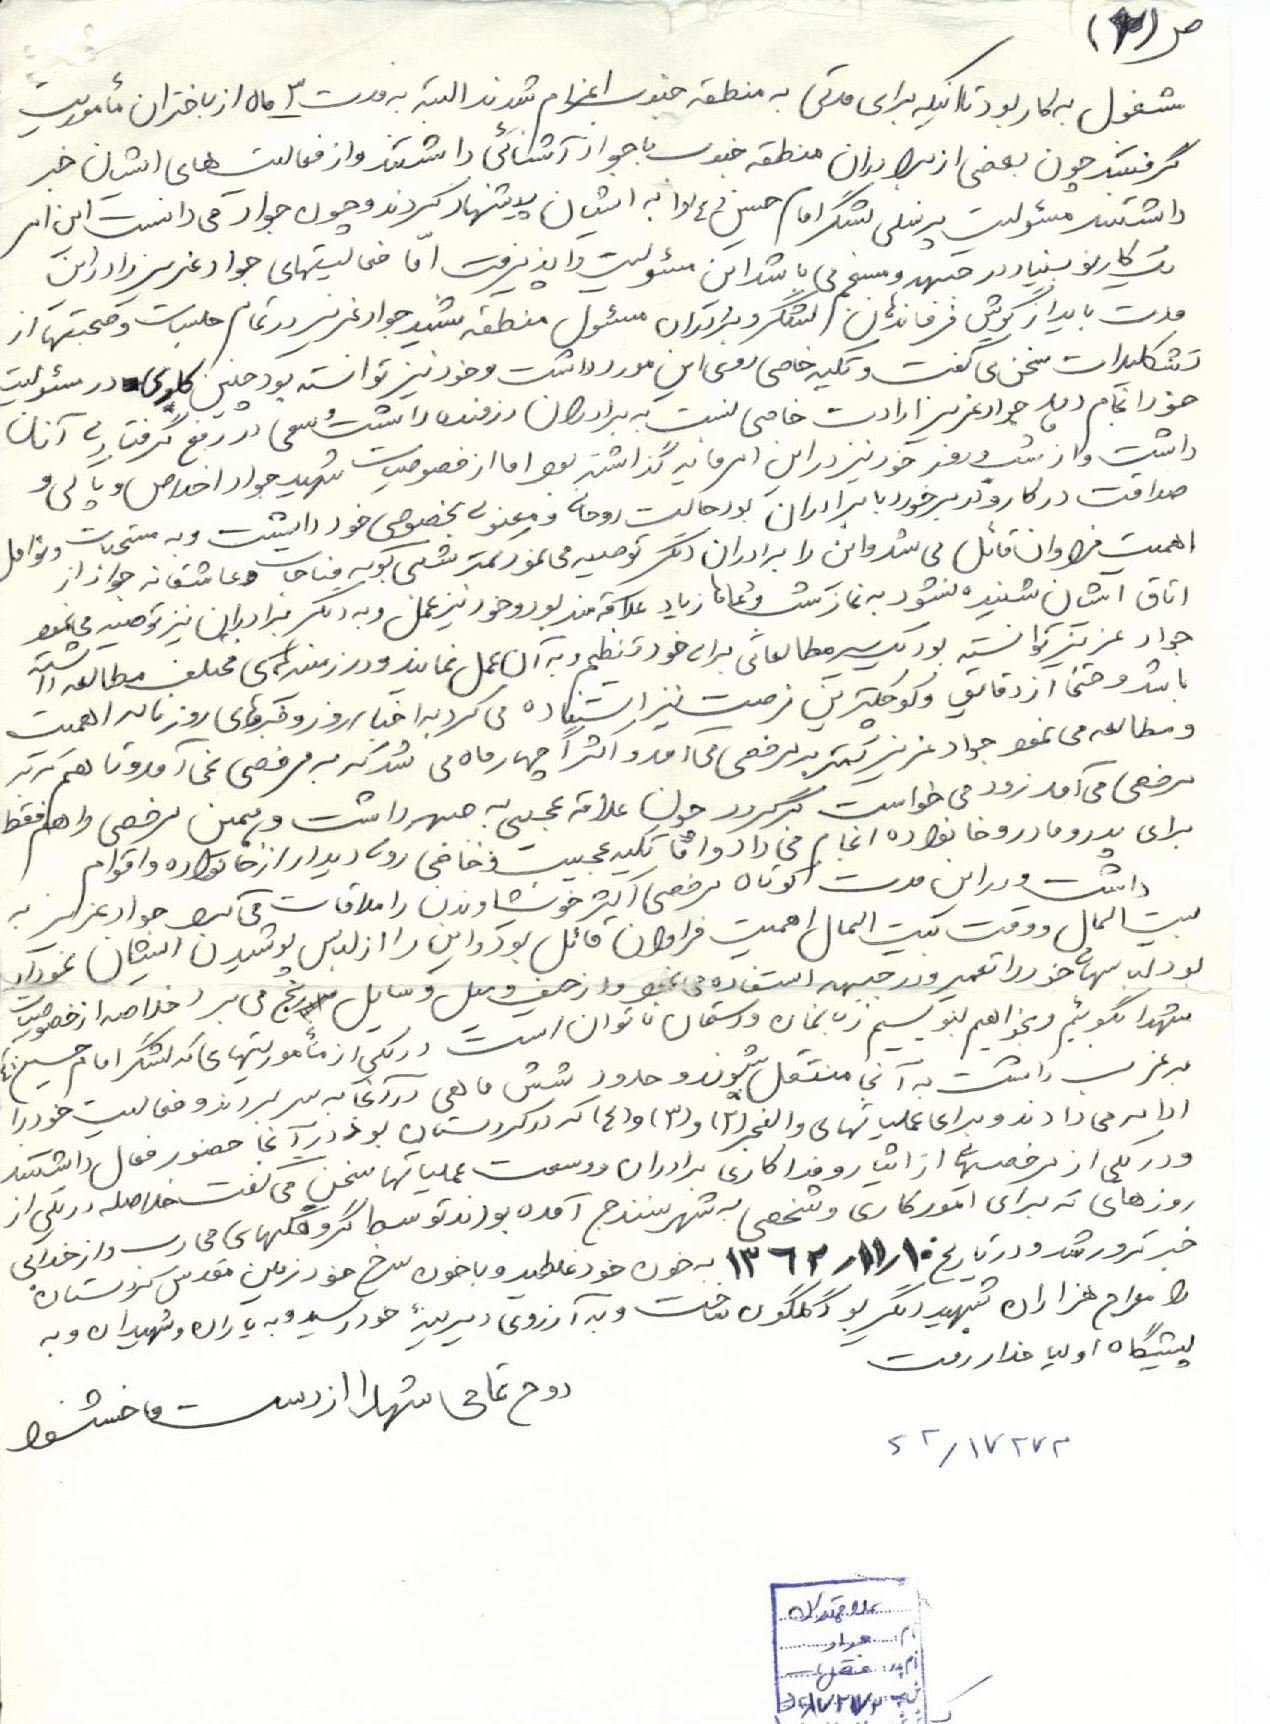 ص (۲)
مشغول به کار بود تا اینکه برای مدتی به منطقه جنوب اعزام شدند البته به مدت ۳ ماه از باختران مأموریت
گرفتند چون بعضی از برادران منطقه جنوب با جواد آشنائی داشتند و از فعالیت‌های ایشان خبر
داشتند مسئولیت پرسنلی لشگر امام حسین ع را به ایشان پیشنهاد کردند و چون جواد می دانست این امر
یک کار نو بنیاد در جبهه و می باشد این مسئولیت را پذیرفت امّا فعالیتهای جواد عزیز را در این
مدت باید از گوش فرماندهان لشگر و برادران مسئول منطقه شنید جواد عزیز در تمام جلسات و صحبتها از
تشکیلات سخن می گفت و تکیه خاصی روی این مورد داشت و خود نیز توانسته بود چنین کاری در مسئولیت
خود انجام دهد جواد عزیز ارادت خاصی نسبت به برادران رزمنده داشت و سعی در رفع گرفتاریهای آنان
داشت و از شب و روز خود نیز در این امر مایه گذاشته بود اما از خصوصیات شهید جواد اخلاص و پاکی و
صداقت در کار و در برخورد با برادران بود حالت روحانی و معنوی بخصوصی خود داشت و به مستحبات و نوافل
اهمیت فراوان قائل می شد و این را به برادران دیگر توصیه می نمود کمتر شبی بود که مناجات عاشقانه جواد از
اتاق ایشان شنیده نشود به نماز شب و دعاها زیاد علاقه مند بود و خود نیز عمل و به دیگر برادران نیز توصیه می نمود
جواد عزیز توانسته بود یک سیر مطالعاتی برای خود تنظیم و به آن عمل نمایند و در زمینه های مختلف مطالعه داشته
باشد و حتی از دقایق و کوچکترین فرصت نیز استفاده می کرد به اخبار روز و خبرهای روزنامه اهمیت
و مطالعه می نمود جواد عزیز کمتر به مرخصی می آمد و اکثراً چهار ماه می شد که به مرخصی نمی آمد و تا هم که به
مرخصی می آمد زود می خواست برگردد چون علاقه عجیبی به جبهه داشت و همین مرخصی را هم فقط
برای پدر و مادر و خانواده انجام می داد و اما تکیه عجیب و خاصی روی دیدار از خانواده و اقوام
داشت و در این مدت کوتاه مرخصی اکثر خویشاوندان را ملاقات می کرد جواد عزیز به
بیت المال و وقت بیت المال اهمیت فراوان قائل بود و این را از لباس پوشیدن ایشان
بود لباسهای خود را تعمیر و در جبهه استفاده می نمود و از حیف و میل وسایل رنج می برد خلاصه از خصوصیات
شهدا بگوئیم و بخواهیم بنویسیم زبانمان و دستمان ناتوان است در یکی از مأموریتهای که لشگر امام حسین (ع)
به غرب داشت به آنجا منتقل شوند و حدود شش ماهی در آنجا به سر بردند و فعالیت خود را
ادامه می دادند و برای عملیاتهای والفجر (۲) و (۳) و (٤) که در کردستان بود در آنجا حضور فعال داشتند
و در یکی از مرخصیهای از ایثار و فداکاری برادران و وسعت عملیاتها سخن می گفت خلاصه در یکی از
روزهای که برای امور کاری و شخصی به شهر سنندج آمده بودند توسط گروهکهای محارب و از خدا بی
خبر ترور شد و در تاریخ ۱۳۶۲/۱۱/۱۰ به خون خود غلطید و با خون سرخ خود زمین مقدس کردستان
که معراج هزاران شهید دیگر بود گلگون ساخت و به آرزوی دیرینهٔ خود رسید و به یاران و شهیدان و به
پیشگاه اولیا خدا رفت
روح تمامی شهدا از دست ما خشنود
۶۲/۱۷۲۷۳
نام: جواد
نام پدر: